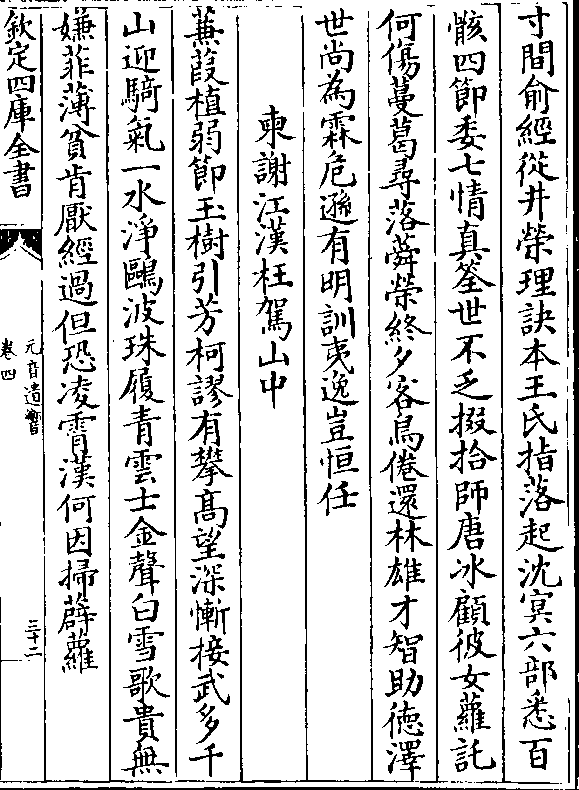 寸間俞經從井榮理訣本王氏指落起沈冥六部悉百
骸四節委七情真筌世不乏掇拾師唐冰顧彼女蘿託
何傷蔓葛尋落蕣榮終夕客鳥倦還林雄才智助德澤
世尚為霖危遜有明訓夷逸豈恒任
柬謝江漢枉駕山中
蒹葭植弱節玉樹引芳柯謬有攀高望深慚接武多千
山迎騎氣一水淨鷗波珠履青雲士金聲白雪歌貴無
嫌菲薄貧肯厭經過但恐凌霄漢何因掃薜蘿
欽定四庫全書
元音遺響
卷四
三十二